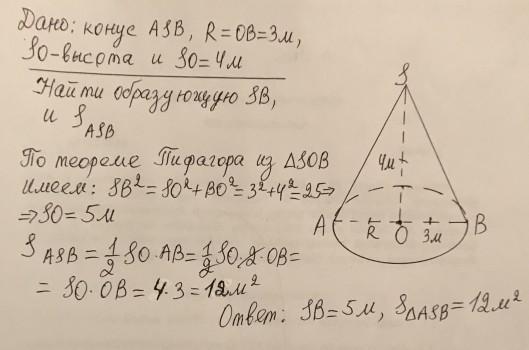 Дано: конус ASB, R=OB=3м,
SO-высота и SO=4м
Найти образующую SB,
и S_ASB
По теореме Пифагора из ΔSOB
имеем: SB²=SO²+BO²=3²+4²=25⇒
⇒SO=5м
S_ASB = 1/2 SO·AB=1/2 SO·2·OB=
= SO·OB= 4·3=12м²
Ответ: SB=5м, S_ΔASB=12м²
S
4м
A
R
O
3м
B